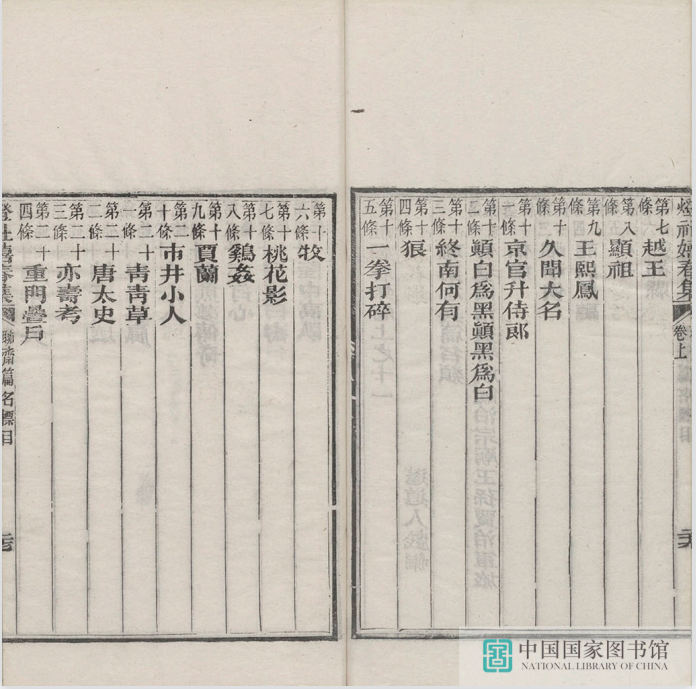 燈社嬉春集 卷上
第七條 越王
第八條 顯祖
第九條 王熙鳳
第十條 久聞大名
第十一條 京官升侍郎
第十二條 顚白爲黑顚黑爲白
第十三條 終南何有
第十四條 狼
第十五條 一拳打碎
第十六條 牧
第十七條 桃花影
第十八條 鷄姦
第十九條 賈蘭
第二十條 市井小人
第二十一條 靑靑草
第二十二條 唐太史
第二十三條 亦壽考
第二十四條 重門疊戶
燈社嬉春集 聊齋篇名標目
中国国家图书馆
NATIONAL LIBRARY OF CHINA